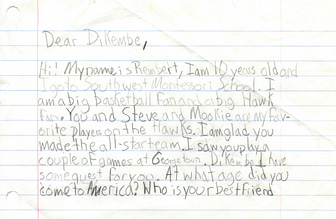 Dear Dikembe,
Hi! My name is Rembert, I am 10 years old and
I go to Southwest Montessori School. I
am a big basketball fan and a big Hawk
fan. You and Steve and Mookie are my fav-
orite player on the Hawks. I am glad you
made the all-star team. I saw you play a
couple of games at Georgetown. Dikembe I have
some quest for you. At what age did you
come to America? Who is your best friend